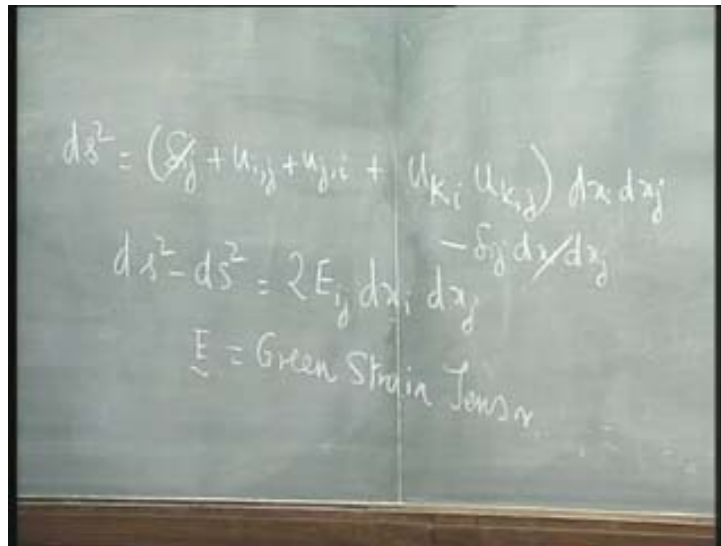 ds² = (δij + ui,j + uj,i + uk,i uk,j) dxi dxj
- δij dxi dxj
ds² - dS² = 2Eij dxi dxj
E = Green Strain Tensor